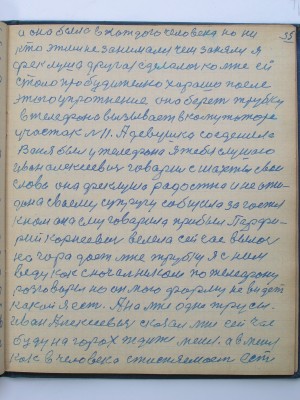 35
и она была в каждого человека но ни
кто этим не занимался чем занялся
фекуша другая сделалась же ей
стало пробудительно хорошо после
этого упрожнение она берет трубку
в телефона вызывает в коммутаторе
участак №11. А девушка соседенела
Ваня был у телефона я тебя слушаю
Иван алексеевич говарил с шахты свои
слова она фекуша радостно и не ожи-
дона своему супругу сабщила за гостя
к ном она ему говарила прибыл Парфи-
рий Корнеевич велела сей час выход
на гора дает мне трубку я с ним
веду как с начальником по телефону
разговоры но он мою форму не видет
какой я есть. А на мне одне трусы.
Иван Алексеевич сказал мне сей час
буду на горах ждите меня. а в меня
как в человека стисняемост ест